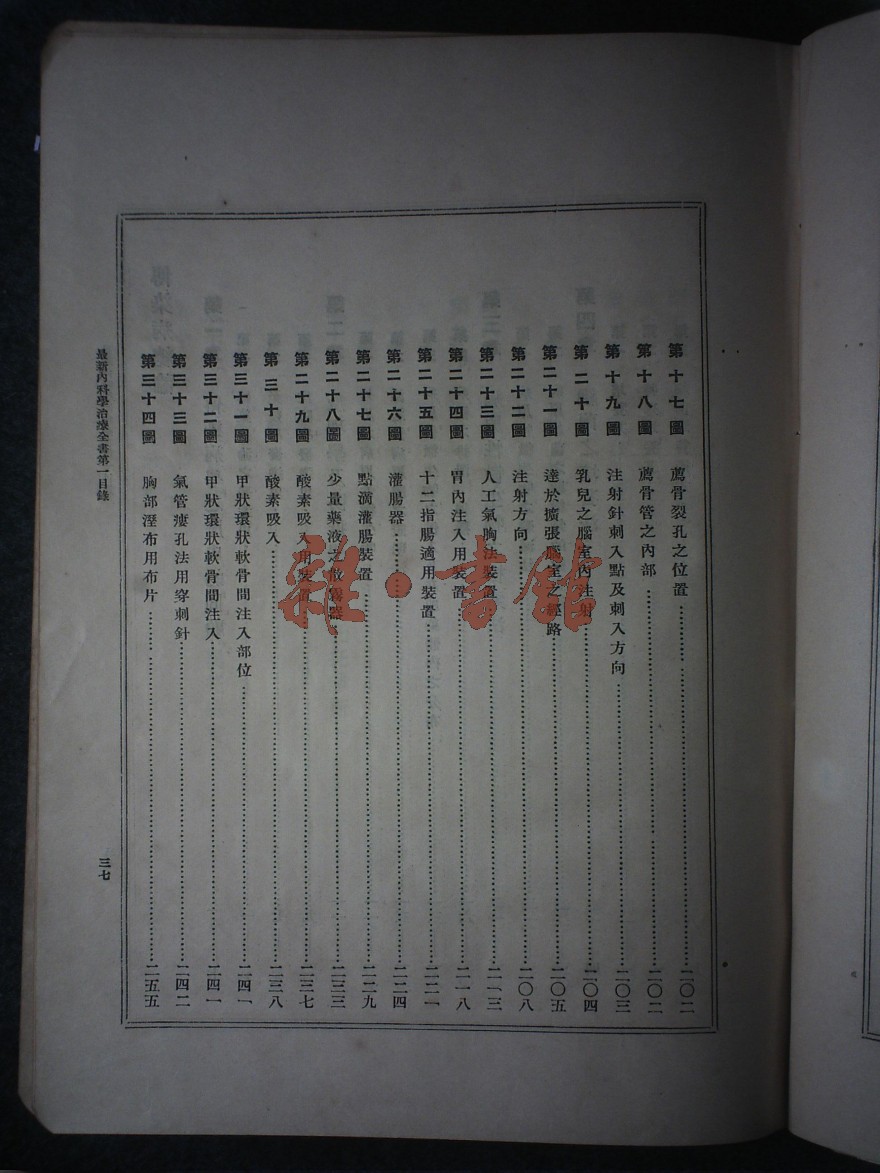 第十七圖　薦骨裂孔之位置……二〇二
第十八圖　薦骨管之內部……二〇二
第十九圖　注射針刺入點及刺入方向……二〇三
第二十圖　乳兒之腦室內注射……二〇四
第二十一圖　達於擴張腦室之經路……二〇五
第二十二圖　注射方向……二〇八
第二十三圖　人工氣胸法裝置……二一三
第二十四圖　胃內注入用裝置……二一八
第二十五圖　十二指腸適用裝置……二二一
第二十六圖　灌腸器……二二四
第二十七圖　點滴灌腸裝置……二二九
第二十八圖　少量藥液之散霧器……二三三
第二十九圖　酸素吸入用裝置……二三七
第三十圖　酸素吸入……二三八
第三十一圖　甲狀環狀軟骨間注入部位……二四一
第三十二圖　甲狀環狀軟骨間注入……二四一
第三十三圖　氣管瘻孔法用穿刺針……二四二
第三十四圖　胸部溼布用布片……二五五
最新內科學治療全書第一目錄
三七
雜·書館